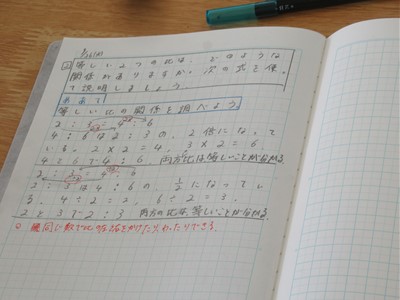 2 等しい2つの比は、どのような
関係がありますか。次の式を使っ
て説明しましょう。
めあて
等しい比の関係を調べよう。
2:3 4:6
4:6は2:3の2倍になって
いる。2×2=4、3×2=6
4と6で4:6 両方比は等しいことが分かる。
2:3 4:6
2:3は4:6の 1/2 になってい
る。4÷2=2、6÷2=3、
2と3で2:3 両方の比は等しいことが分かる。
同じ数で
かけたりわったりできる。